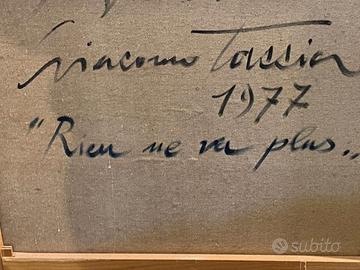 Giacomo Tassior
1977
"Rien ne va plus„
subito